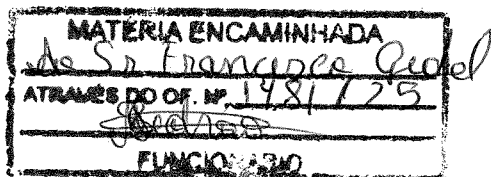 MATÉRIA ENCAMINHADA
Ao Sr Francisco Gedel
ATRAVÉS DO OF. Nº 1481/25
FUNCIONÁRIO